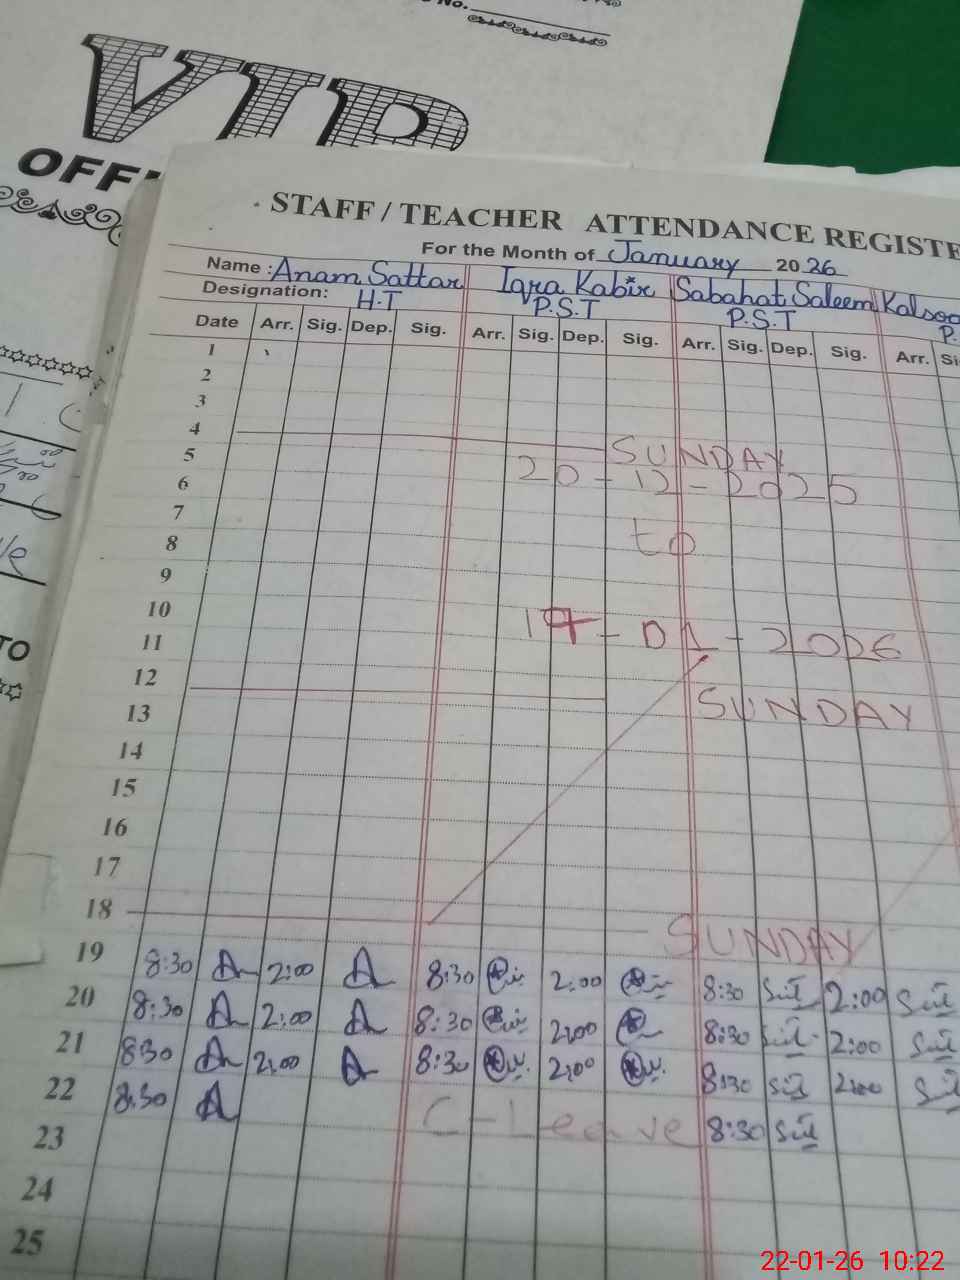 No.
VIP
OFF
STAFF / TEACHER ATTENDANCE REGISTE
For the Month of January 2026
Name : Anam Sattar Iqra Kabir Sabahat Saleem Kalsoo
Designation: H.T P.S.T P.S.T P.
Date Arr. Sig. Dep. Sig. Arr. Sig. Dep. Sig. Arr. Sig. Dep. Sig. Arr. Si
1
2
3
4 SUNDAY
5 20-12-2025
6
7
8 to
9
10
11 17-01-2026
12 SUNDAY
13
14
15
16
17
18 SUNDAY
19 8:30 2:00 8:30 2:00 8:30 2:00
20 8:30 2:00 8:30 2:00 8:30 2:00
21 8:30 2:00 8:30 2:00 8:30 2:00
22 8:30 C-Leave 8:30
23
24
25
TO
22-01-26 10:22